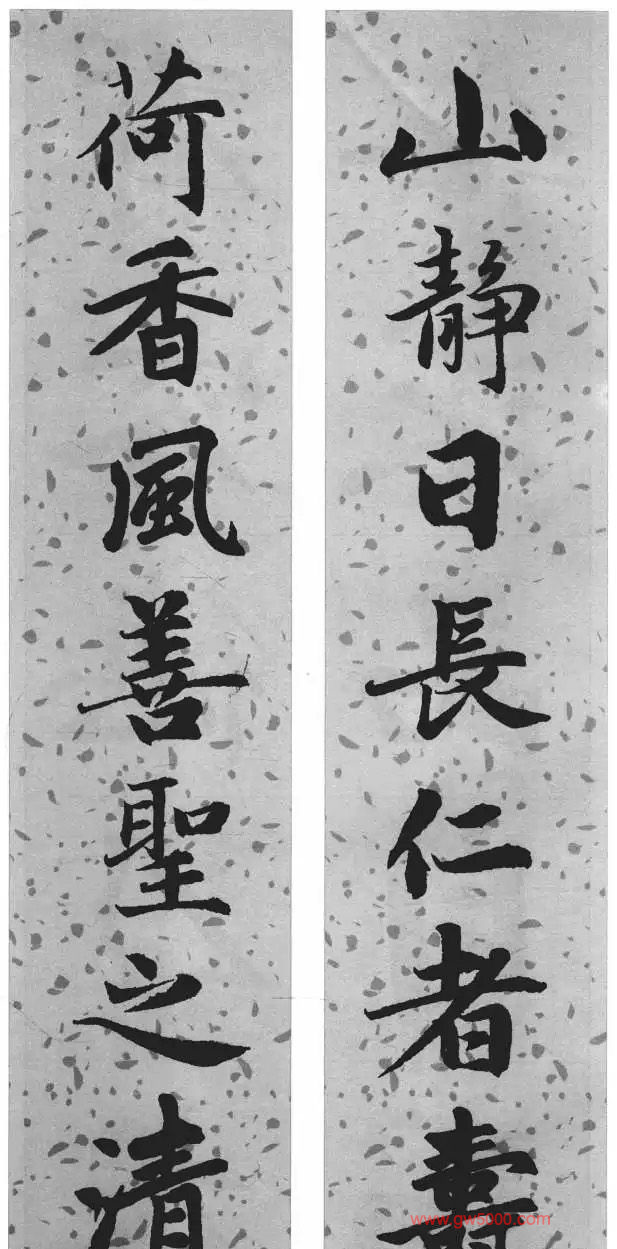 山静日長仁者壽
荷香風善聖之清
www.gw5000.com